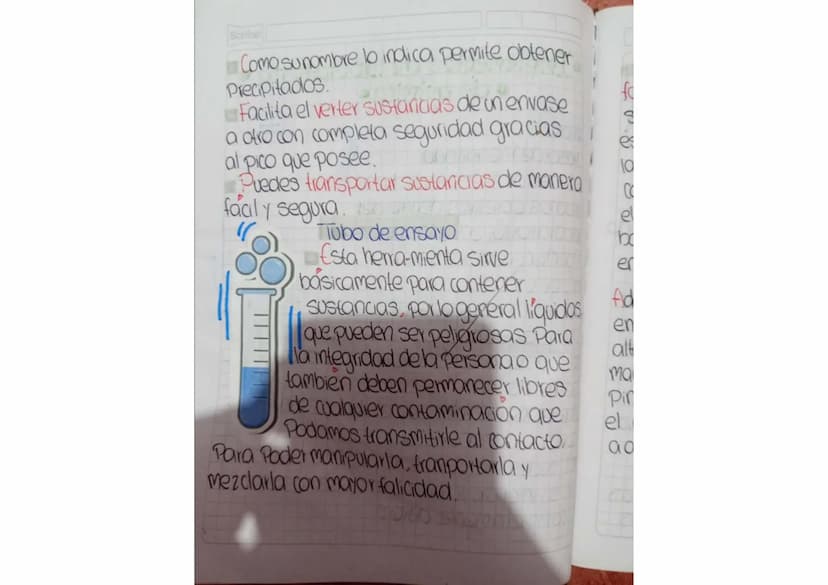 Scribe
Como su nombre lo indica permite obtener
precipitados.
Facilita el verter sustancias de un envase
a otro con completa seguridad gracias
al pico que posee.
Puedes transportar sustancias de manera
fácil y segura.
Tubo de ensayo
Esta herra-mienta sirve
básicamente para contener
sustancias, por lo general líquidos
que pueden ser peligrosas para
la integridad de la persona o que
también deben permanecer libres
de cualquier contaminación que
podamos transmitirle al contacto.
Para poder manipularla, tranportarla y
mezclarla con mayor falicidad.
Ad
en
alt
ma
pir
el